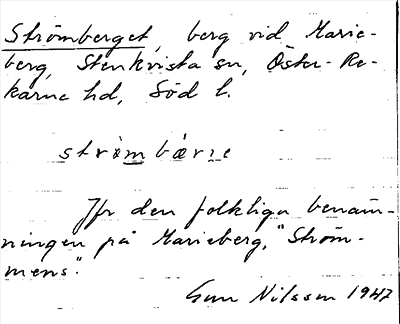 Strömberget, berg vid Marie-
berg, Stenkvista sn, Öster-Re-
karne hd, Söd l.
strömbærıe
Jfr den folkliga benäm-
ningen på Marieberg, "Ström-
mens".
Gun Nilsson 1947